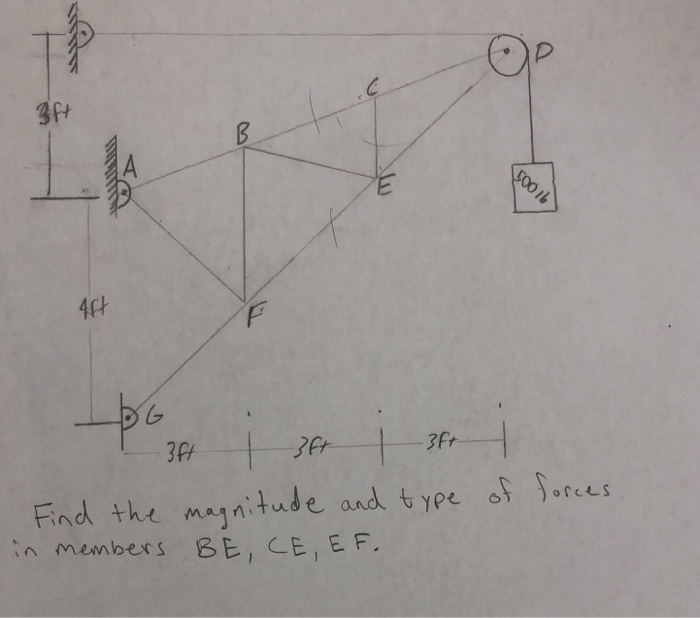 D
3ft
C
B
A
500 lb
E
4ft
F
G
3ft 3ft 3ft
Find the magnitude and type of forces
in members BE, CE, EF.